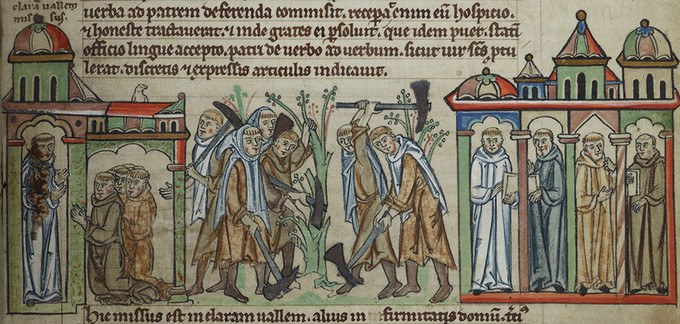 clara uallem
mis sus
uerba ad patrem deferenda commisit. recepat enim eū hospicio.
⁊ honeste tractauerat. ⁊ inde grates ei psoluit. que idem puer statī
officio lingue accepto. patri de uerbo ad uerbum. sicut uir scs ptu
lerat. discretis ⁊ expressis articulis indicauit.
hic missus est in claram uallem. alius in firmitatis domū.